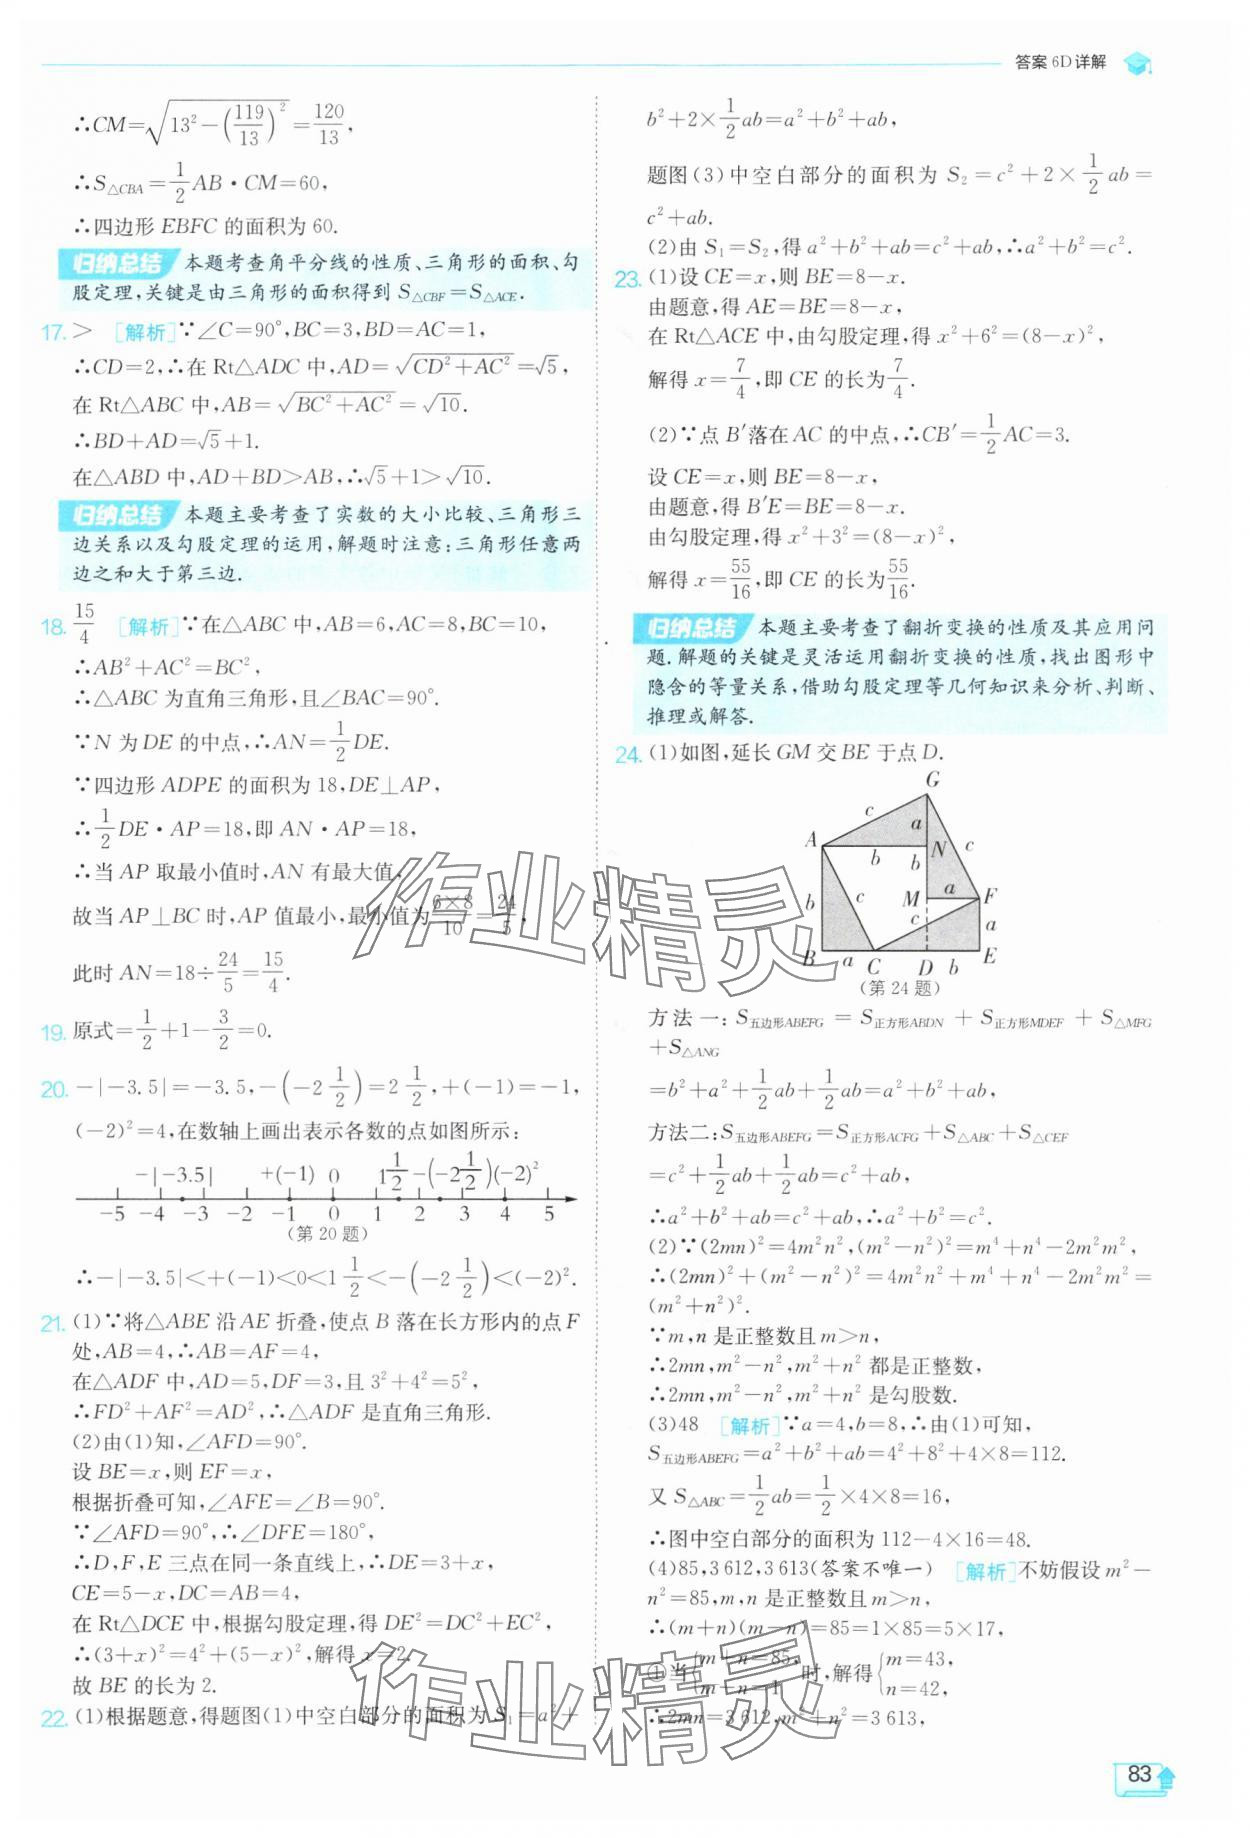 答案 6D 详解
∴CM=√(13²-(119/13)²)=120/13,
∴S△CBA=1/2AB·CM=60,
∴四边形 EBFC 的面积为 60.
归纳总结 本题考查角平分线的性质、三角形的面积、勾
股定理,关键是由三角形的面积得到 S△CBF=S△ACE.
17. > [解析]∵∠C=90°,BC=3,BD=AC=1,
∴CD=2,∴在 Rt△ADC 中,AD=√(CD²+AC²)=√5,
在 Rt△ABC 中,AB=√(BC²+AC²)=√10.
∴BD+AD=√5+1.
在△ABD 中,AD+BD>AB,∴√5+1>√10.
归纳总结 本题主要考查了实数的大小比较、三角形三
边关系以及勾股定理的运用,解题时注意:三角形任意两
边之和大于第三边.
18. 15/4 [解析]∵在△ABC 中,AB=6,AC=8,BC=10,
∴AB²+AC²=BC²,
∴△ABC 为直角三角形,且∠BAC=90°.
∵N 为 DE 的中点,∴AN=1/2DE.
∵四边形 ADPE 的面积为 18,DE⊥AP,
∴1/2DE·AP=18,即 AN·AP=18,
∴当 AP 取最小值时,AN 有最大值,
故当 AP⊥BC 时,AP 值最小,最小值为6×8/10=24/5,
此时 AN=18÷24/5=15/4.
19. 原式=1/2+1-3/2=0.
20. -|-3.5|=-3.5,-(-2 1/2)=2 1/2,+(-1)=-1,
(-2)²=4,在数轴上画出表示各数的点如图所示:
-|-3.5| +(-1) 0 1 1/2 -(-2 1/2) (-2)²
-5 -4 -3 -2 -1 0 1 2 3 4 5
(第 20 题)
∴-|-3.5|<+(-1)<0<1 1/2<-(-2 1/2)<(-2)².
21. (1)∵将△ABE 沿 AE 折叠,使点 B 落在长方形内的点 F
处,AB=4,∴AB=AF=4,
在△ADF 中,AD=5,DF=3,且 3²+4²=5²,
∴FD²+AF²=AD²,∴△ADF 是直角三角形.
(2)由(1)知,∠AFD=90°.
设 BE=x,则 EF=x,
根据折叠可知,∠AFE=∠B=90°.
∵∠AFD=90°,∴∠DFE=180°,
∴D,F,E 三点在同一条直线上,∴DE=3+x,
CE=5-x,DC=AB=4,
在 Rt△DCE 中,根据勾股定理,得 DE²=DC²+EC²,
∴(3+x)²=4²+(5-x)²,解得 x=2.
故 BE 的长为 2.
22. (1)根据题意,得题图(1)中空白部分的面积为 S₁=a²+
b²+2×1/2ab=a²+b²+ab,
题图(3)中空白部分的面积为 S₂=c²+2×1/2ab=
c²+ab.
(2)由 S₁=S₂,得 a²+b²+ab=c²+ab,∴a²+b²=c².
23. (1)设 CE=x,则 BE=8-x.
由题意,得 AE=BE=8-x,
在 Rt△ACE 中,由勾股定理,得 x²+6²=(8-x)²,
解得 x=7/4,即 CE 的长为7/4.
(2)∵点 B′落在 AC 的中点,∴CB′=1/2AC=3.
设 CE=x,则 BE=8-x,
由题意,得 B′E=BE=8-x.
由勾股定理,得 x²+3²=(8-x)²,
解得 x=55/16,即 CE 的长为55/16.
归纳总结 本题主要考查了翻折变换的性质及其应用问
题.解题的关键是灵活运用翻折变换的性质,找出图形中
隐含的等量关系,借助勾股定理等几何知识来分析、判断、
推理或解答.
24. (1)如图,延长 GM 交 BE 于点 D.
G
c a
A b b N c
b c M a F
c a
B a C D b E
(第 24 题)
方法一:S五边形ABEFG = S正方形ABDN + S正方形MDEF + S△MFG
+S△ANG
=b²+a²+1/2ab+1/2ab=a²+b²+ab,
方法二:S五边形ABEFG=S正方形ACFG+S△ABC+S△CEF
=c²+1/2ab+1/2ab=c²+ab,
∴a²+b²+ab=c²+ab,∴a²+b²=c².
(2)∵(2mn)²=4m²n²,(m²-n²)²=m⁴+n⁴-2m²m²,
∴(2mn)²+(m²-n²)²=4m²n²+m⁴+n⁴-2m²m²=
(m²+n²)².
∵m,n 是正整数且 m>n,
∴2mn,m²-n²,m²+n² 都是正整数,
∴2mn,m²-n²,m²+n² 是勾股数.
(3)48 [解析]∵a=4,b=8,∴由(1)可知,
S五边形ABEFG=a²+b²+ab=4²+8²+4×8=112.
又 S△ABC=1/2ab=1/2×4×8=16,
∴图中空白部分的面积为 112-4×16=48.
(4)85,3 612,3 613(答案不唯一) [解析]不妨假设 m²-
n²=85,m,n 是正整数且 m>n,
∴(m+n)(m-n)=85=1×85=5×17,
①当{m+n=85, m-n=1 时,解得{m=43, n=42,
∴2mn=3 612,m²+n²=3 613,
作业精灵
作业精灵
83